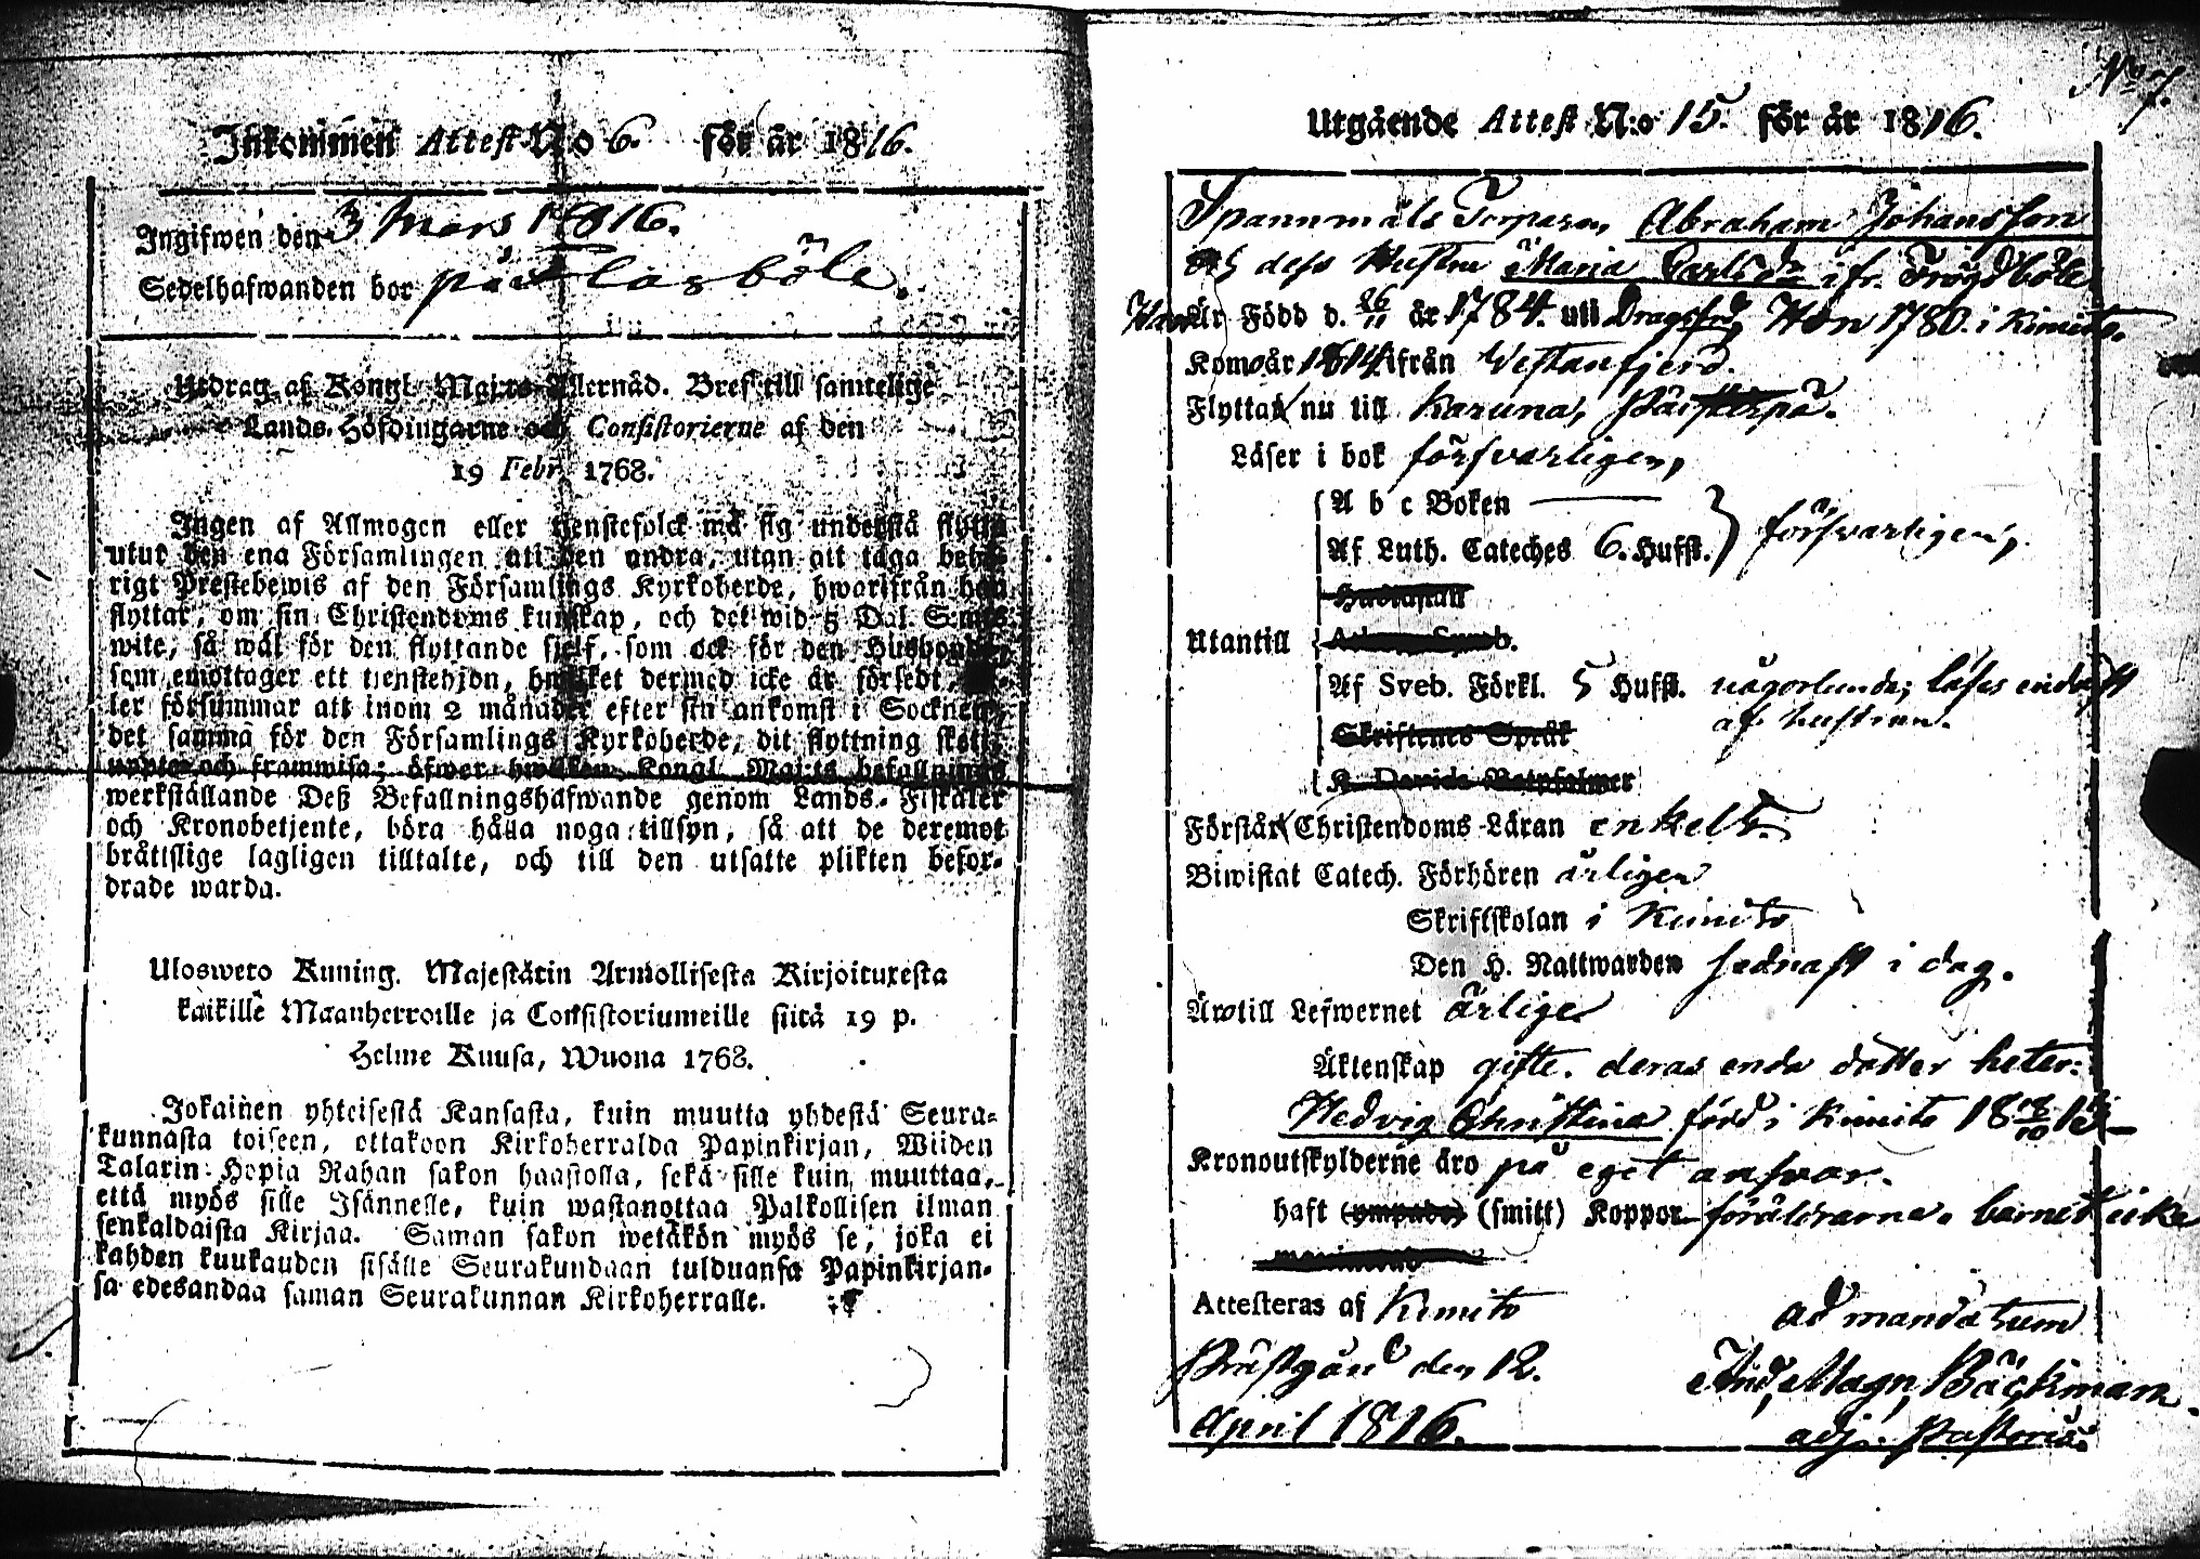 Inkommen Attest No 6. för år 1816.
Ingifwen den 3 Mars 1816.
Sedelhafwanden bor på
Utdrag af Kongl. Maj:ts Allernåd. Bref till samtelige
Lands-Höfdingarne och Consistorierne af den
19 Febr. 1768.
Ingen af Allmogen eller tjenstefolck må sig understå flytta
utur den ena Församlingen till den andra, utan att taga behö-
rigt Prestebewis af den Församlings Kyrkoherde, hwarifrån han
flyttar, om sin Christendoms kunskap, och det wid 5 Dal. S:mts
wite, så wäl för den flyttande sjelf, som ock för den Husbonde,
som emottager ett tienstehjon, hwilket dermed icke är försedt,
ler försummar att inom 2 månader efter sin ankomst i Socknen,
det samma för den Församlings Kyrkoherde, dit flyttning skett,
uppte och framwisa; öfwer hwilken Kongl. Maj:ts befallnings
werkställande Deß Befallningshafwande genom Lands-Fiskaler
och Kronobetjente, böra hålla noga tillsyn, så att de deremot
bråttslige lagligen tilltalte, och till den utsatte plikten befor-
drade warda.
Uloswetö Kuning. Majestätin Armollisesta Kirjoituxesta
kaikille Maanherroille ja Consistoriumeille siitä 19 p.
Helme Kuusa, Wuona 1768.
Jokainen yhteisestä Kansasta, kuin muutta yhdestä Seura-
kunnasta toiseen, ottakoon Kirkoherralda Papinkirjan, Wiiden
Talarin Hopia Rahan sakon haastolla, sekä sille kuin muuttaa,
että myös sille Isännelle, kuin wastanottaa Palkollisen ilman
senkaldaista Kirjaa. Saman sakon wetäkön myös se, joka ei
kahden kuukauden sisälle Seurakundaan tulduansa Papinkirjan-
sa edesandaa saman Seurakunnan Kirkoherralle.
No 7.
Utgående Attest N:o 15. för år 1816.
Spannmåls Torparen, Abraham Johansson
och dess Hustru Maria Carlsdr ifr. Trögsböle
Han Är Född d. 26/11 år 1784. uti Dragsfrd, Hon 1780. i Kimito.
Kom år 1814 ifrån Westanfjerd.
Flyttar nu till Karuna,
Läser i bok försvarligen,
A b c Boken
Af Luth. Cateches 6. Hufst. } försvarligen,
Hustaflan
Utantill
Af Sveb. Förkl. 5 Hufst. någorlunda; läses endast
af hustrun.
Skriftenes Språk
K. Davids Botpsalmer
Förstår Christendoms-Läran enkelt.
Biwistat Catech. Förhören årligen
Skriftskolan i Kimito
Den H. Nattwarden sednast i dag.
Är till Lefwernet ärliga
Äktenskap gifte. deras enda dotter heter:
Hedvig Christina född i Kimito 18 18/10 15
Kronoutskylderne äro på eget ansvar.
haft (ympade) (smitt) Koppor föräldrarna, barnet icke
Attesteras af Kimito
Prästgård den 12.
April 1816.
ad mandatum
And. Magn. Bäckman.
adj. Pastoris.